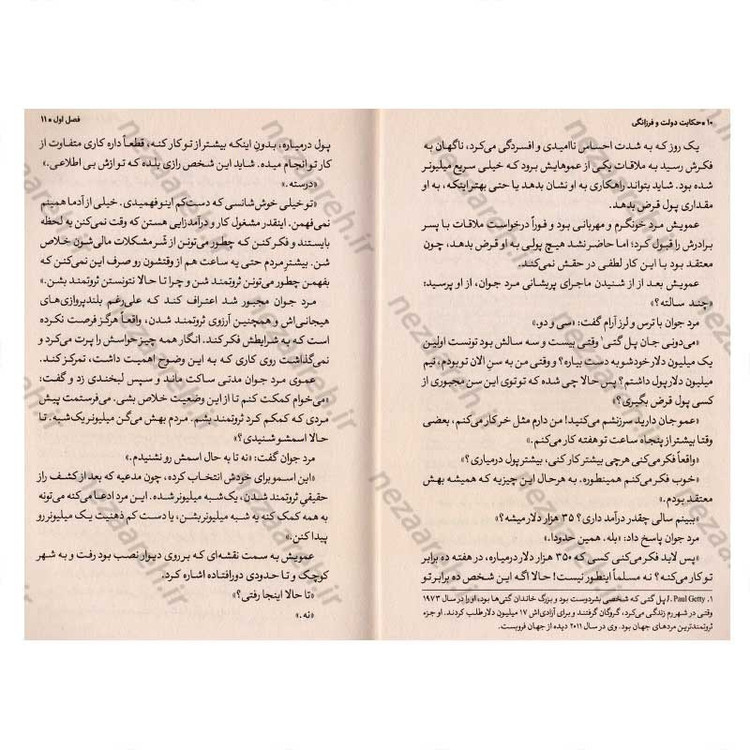 ۱۰ ● حکایت دولت و فرزانگی
یک روز که به شدت احساس ناامیدی و افسردگی می‌کرد، ناگهان به
فکرش رسید به ملاقات یکی از عموهایش برود که خیلی سریع میلیونر
شده بود. شاید بتواند راهکاری به او نشان بدهد یا حتی بهتر اینکه، به او
مقداری پول قرض بدهد.
عمویش مرد خونگرم و مهربانی بود و فوراً درخواست ملاقات با پسر
برادرش را قبول کرد؛ اما حاضر نشد هیچ پولی به او قرض بدهد، چون
معتقد بود با این کار لطفی در حقش نمی‌کند.
عمویش بعد از از شنیدن ماجرای پریشانی مرد جوان، از او پرسید:
«چند سالته؟»
مرد جوان با ترس و لرز آرام گفت: «سی و دو.»
«می‌دونی جان پل گتی۱ وقتی بیست و سه سالش بود تونست اولین
یک میلیون دلار خودشو به دست بیاره؟ و وقتی من به سنِ الان تو بودم، نیم
میلیون دلار پول داشتم؟ پس حالا چی شده که تو توی این سن مجبوری از
کسی پول قرض بگیری؟»
«عمو جان دارید سرزنشم می‌کنید! من دارم مثل خر کار می‌کنم، بعضی
وقتا بیشتر از پنجاه ساعت تو هفته کار می‌کنم.»
«واقعاً فکر می‌کنی هرچی بیشتر کار کنی، بیشتر پول درمیاری؟»
«خوب فکر می‌کنم همینطوره. به هرحال این چیزیه که همیشه بهش
معتقد بودم.»
«ببینم سالی چقدر درآمد داری؟ ۳۵ هزار دلار میشه؟»
مرد جوان پاسخ داد: «بله. همین حدودا.»
«پس لابد فکر می‌کنی کسی که ۳۵۰ هزار دلار درمیاره، در هفته ده برابر
تو کار می‌کنه؟ نه مسلماً اینطور نیست! حالا اگه این شخص ده برابر تو
۱. J. Paul Getty پل گتی که شخصی بشردوست بود و بزرگ خاندان گتی‌ها بود؛ او را در سال ۱۹۷۳
وقتی در شهر رم زندگی می‌کرد، گروگان گرفتند و برای آزادی‌اش ۱۷ میلیون دلار طلب کردند. او جزء
ثروتمندترین مردهای جهان بود. وی در سال ۲۰۱۱ دیده از جهان فروبست.
فصل اول ● ۱۱
پول درمیاره، بدونِ اینکه بیشتر از تو کار کنه، قطعاً داره کاری متفاوت از
کار تو انجام میده. شاید این شخص رازی بلده که تو ازش بی اطلاعی.»
«درسته.»
«تو خیلی خوش‌شانسی که دست‌کم اینو فهمیدی. خیلی از آدما همینم
نمی‌فهمن. اینقدر مشغول کار و درآمدزایی هستن که وقت نمی‌کنن یه لحظه
بایستند و فکر کنن که چطور می‌تونن از شّر مشکلات مالی‌شون خلاص
شن. بیشترِ مردم حتی یه ساعت هم از وقتشون رو صرف این نمی‌کنن که
بفهمن چطور می‌تونن ثروتمند شن و چرا تا حالا نتونستن ثروتمند بشن.»
مرد جوان مجبور شد اعتراف کند که علی‌رغم بلندپروازی‌های
هیجانی‌اش و همچنین آرزوی ثروتمند شدن، واقعاً هرگز فرصت نکرده
است که به شرایطش فکر کند. انگار همه چیز حواسش را پرت می‌کرد و
نمی‌گذاشت روی کاری که به این وضوح اهمیت داشت، تمرکز کند.
عموی مرد جوان مدتی ساکت ماند و سپس لبخندی زد و گفت:
«می‌خوام کمکت کنم تا از این وضعیت خلاص بشی. می‌فرستمت پیش
مردی که کمکم کرد ثروتمند بشم. مردم بهش می‌گن میلیونر یک‌شبه. تا
حالا اسمشو شنیدی؟»
مرد جوان گفت: «نه تا به حال اسمش رو نشنیدم.»
«این اسمو برای خودش انتخاب کرده، چون مدعیه که بعد از کشف راز
حقیقیِ ثروتمند شدن، یک‌شبه میلیونر شده. این مرد ادعا می‌کنه می‌تونه
به همه کمک کنه یه شبه میلیونر بشن، یا دست کم ذهنیت یک میلیونر رو
پیدا کنن.»
عمویش به سمت نقشه‌ای که بر روی دیوار نصب بود رفت و به شهر
کوچک و تا حدودی دورافتاده اشاره کرد.
«تا حالا اینجا رفتی؟»
«نه.»
nezaareh.ir